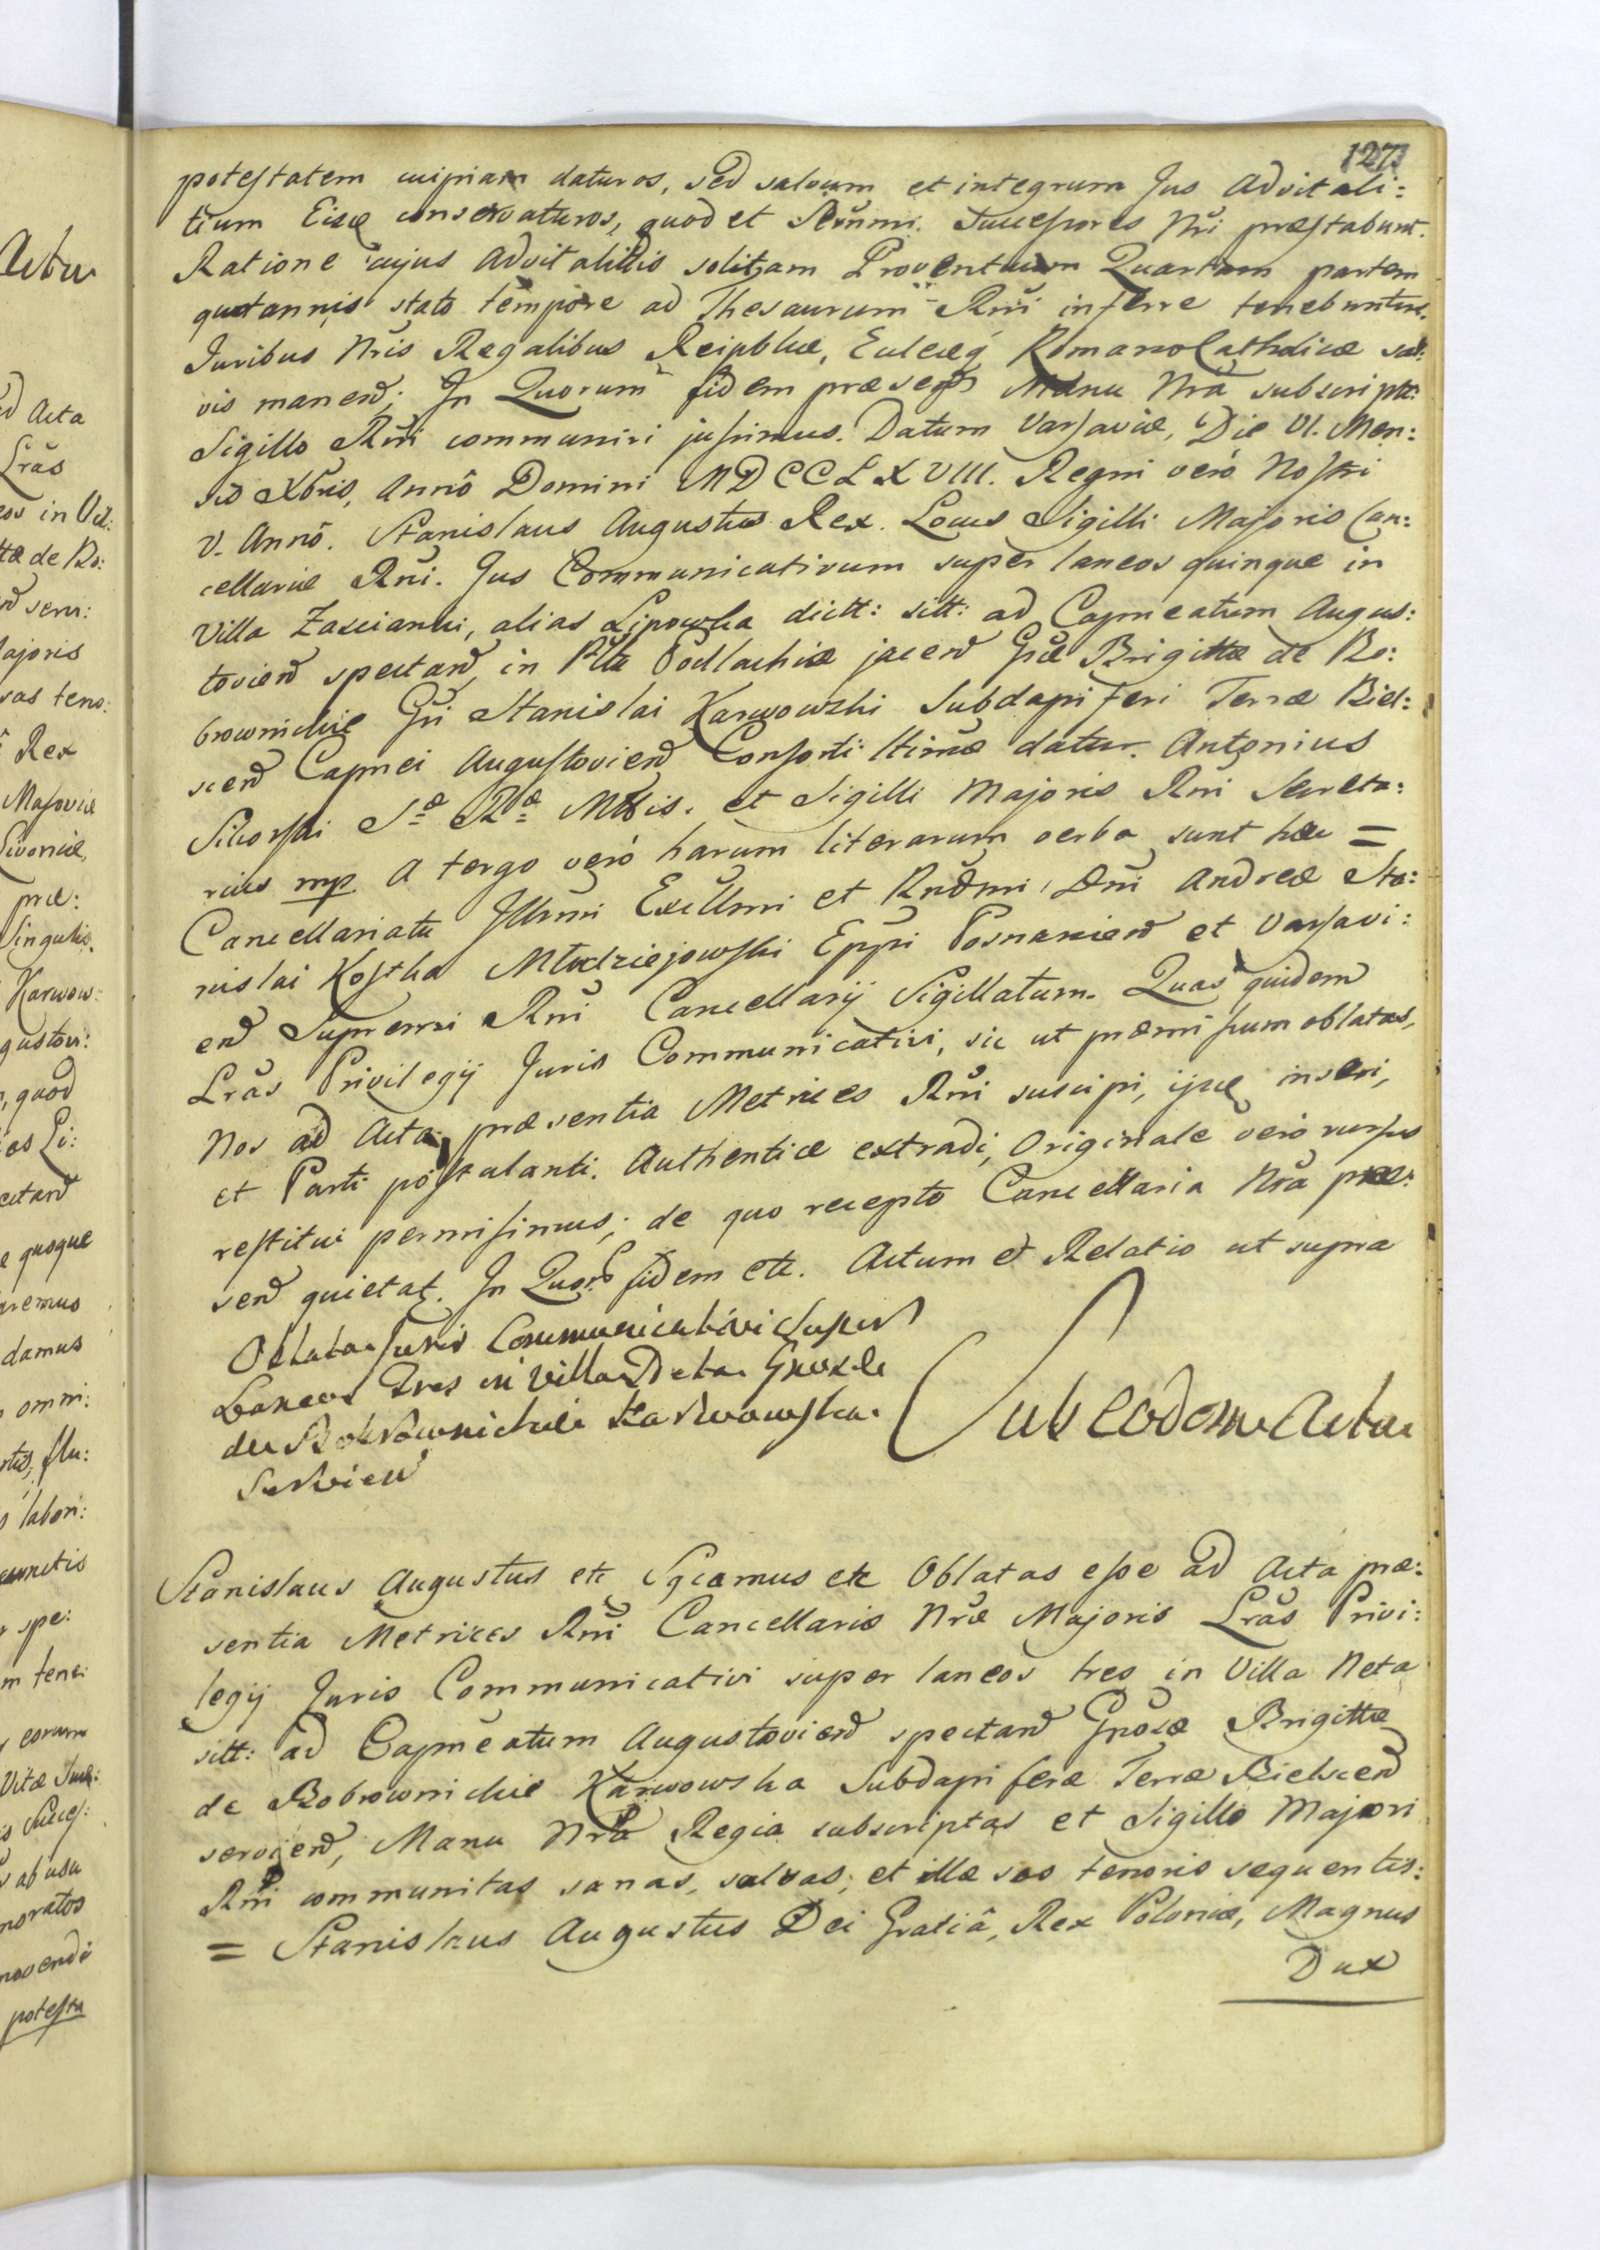 127
potestatem cuipiam daturos, sed salvum et integrum Jus Advitali:
tium Eisq conservaturos, quod et Sermi. Successores Nri præstabunt.
Ratione cujus Advitalitis solitam Proventuum Quartam partem
quotannis stato tempore ad Thesaurum Rni inferre tenebuntur.
Juribus Nris Regalibus Reipblicæ, Eclæq Romano Catholicæ sal:
vis manend; In Quorum fidem præsentes Manu Nrâ subscriptas
Sigillo Rni communiri jussimus. Datum Varsaviæ, Die VI. Men:
sis Xbris, Annô Domini MDCCLXVIII. Regni verò Nostri
V. Annô. Stanislaus Augustus Rex. Locus Sigilli Majoris Can:
cellariæ Rni. Jus Communicativum super laneos quinque in
Villa Zascianki, alias Lipowka dictt: sitt: ad Capneatum Augus:
tovien spectan, in Pltu Podlachiæ jacen Gsæ Brigittæ de Bo:
brownickie Gsi Stanislai Karwowski Subdapiferi Terræ Biel:
scen Capnei Augustovien Consorti ltimæ datur. Antonius
Sikorski Sæ Ræ Mttis. et Sigilli Majoris Rni Secreta:
rius mp A tergo verò harum literarum verba sunt hæc =
Cancellariatu Illrmi Excllmi et Rndmi, Dni Andreæ Sta:
nislai Kostka Młodziejowski Eppi Posnanien et Varsavi:
en Supremi Rni Cancellarij Sigillatum. Quas quidem
Lras Privilegij Juris Communicativi, sic ut præmissum oblatas,
Nos ad Acta præsentia Metrices Rni suscipi, ijsq inseri,
et Parti postulanti. Authenticè extradi, Originale verò rursus
restitui permisimus; de quo recepto Cancellaria Nra præ:
sen quietat. In Quor fidem ett. Actum et Relatio ut supra
Oblata Juris Communicativi super
Laneos Tres in Villa Deta Gnosæ
de Bobrownickie Karwowska
Servien
Sub eodem Actu
Stanislaus Augustus ett Sgcamus ett Oblatas esse ad Acta præ:
sentia Metrices Rni Cancellariæ Nræ Majoris Lras Privi:
legij Juris Communicativi super laneos tres in Villa Neta
sitt: ad Capneatum Augustovien spectan Gnosæ Brigittæ
de Bobrownickie Karwowska Subdapiferæ Terræ Bielscen
servien, Manu Nra Regia subscriptas et Sigillo Majori
Rni communitas sanas, salvas; et illæsas tenoris sequentis:
= Stanislaus Augustus Dei Gratiâ, Rex Poloniæ, Magnus
Dux